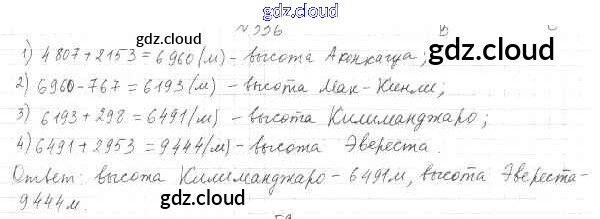 gdz.cloud
№ 996
gdz.cloud
1) 4807+2153=6960(м)- высота Аконкагуа;
gdz.cloud
2) 6960-767=6193(м) - высота Мак-Кинли;
3) 6193+298=6491(м) - высота Килиманджаро;
gdz.cloud
4) 6491+2953=9444(м)- высота Эвереста.
Ответ: высота Килиманджаро - 6491м, высота Эвереста-
9444м.
gdz.cloud
gdz.cloud